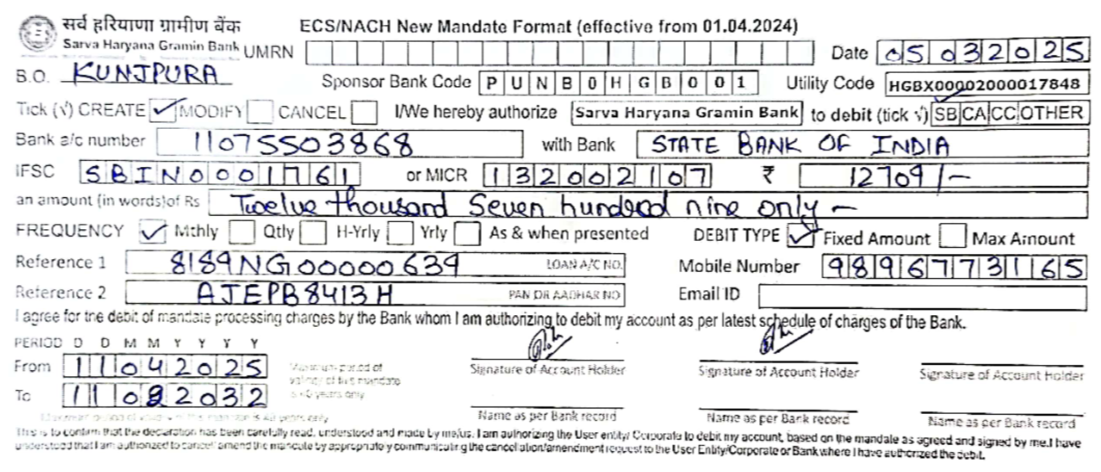 सर्व हरियाणा ग्रामीण बैंक
Sarva Haryana Gramin Bank
ECS/NACH New Mandate Format (effective from 01.04.2024)
UMRN Date 05032025
B.O. KUNJPURA Sponsor Bank Code PUNB0HGB001 Utility Code HGBX00002000017848
Tick (√) CREATE ✓ MODIFY CANCEL I/We hereby authorize Sarva Haryana Gramin Bank to debit (tick √) SB CA CC OTHER
Bank a/c number 11075503868 with Bank STATE BANK OF INDIA
IFSC SBIN0001761 or MICR 132002107 ₹ 12709/-
an amount (in words) of Rs Twelve thousand Seven hundred nine only -
FREQUENCY ✓ Mthly Qtly H-Yrly Yrly As & when presented DEBIT TYPE ✓ Fixed Amount Max Amount
Reference 1 8189NG00000639 LOAN A/C NO. Mobile Number 9896773165
Reference 2 AJEPB8413H PAN OR AADHAR NO Email ID
I agree for the debit of mandate processing charges by the Bank whom I am authorizing to debit my account as per latest schedule of charges of the Bank.
PERIOD D D M M Y Y Y Y
From 11042025
To 11032032
Signature of Account Holder Signature of Account Holder Signature of Account Holder
Name as per Bank record Name as per Bank record Name as per Bank record
This is to confirm that the declaration has been carefully read, understood and made by me/us. I am authorizing the User entity/ Corporate to debit my account, based on the mandate as agreed and signed by me. I have
understood that I am authorized to cancel/ amend the mandate by appropriately communicating the cancelation/amendment request to the User Entity/Corporate or Bank where I have authorized the debit.